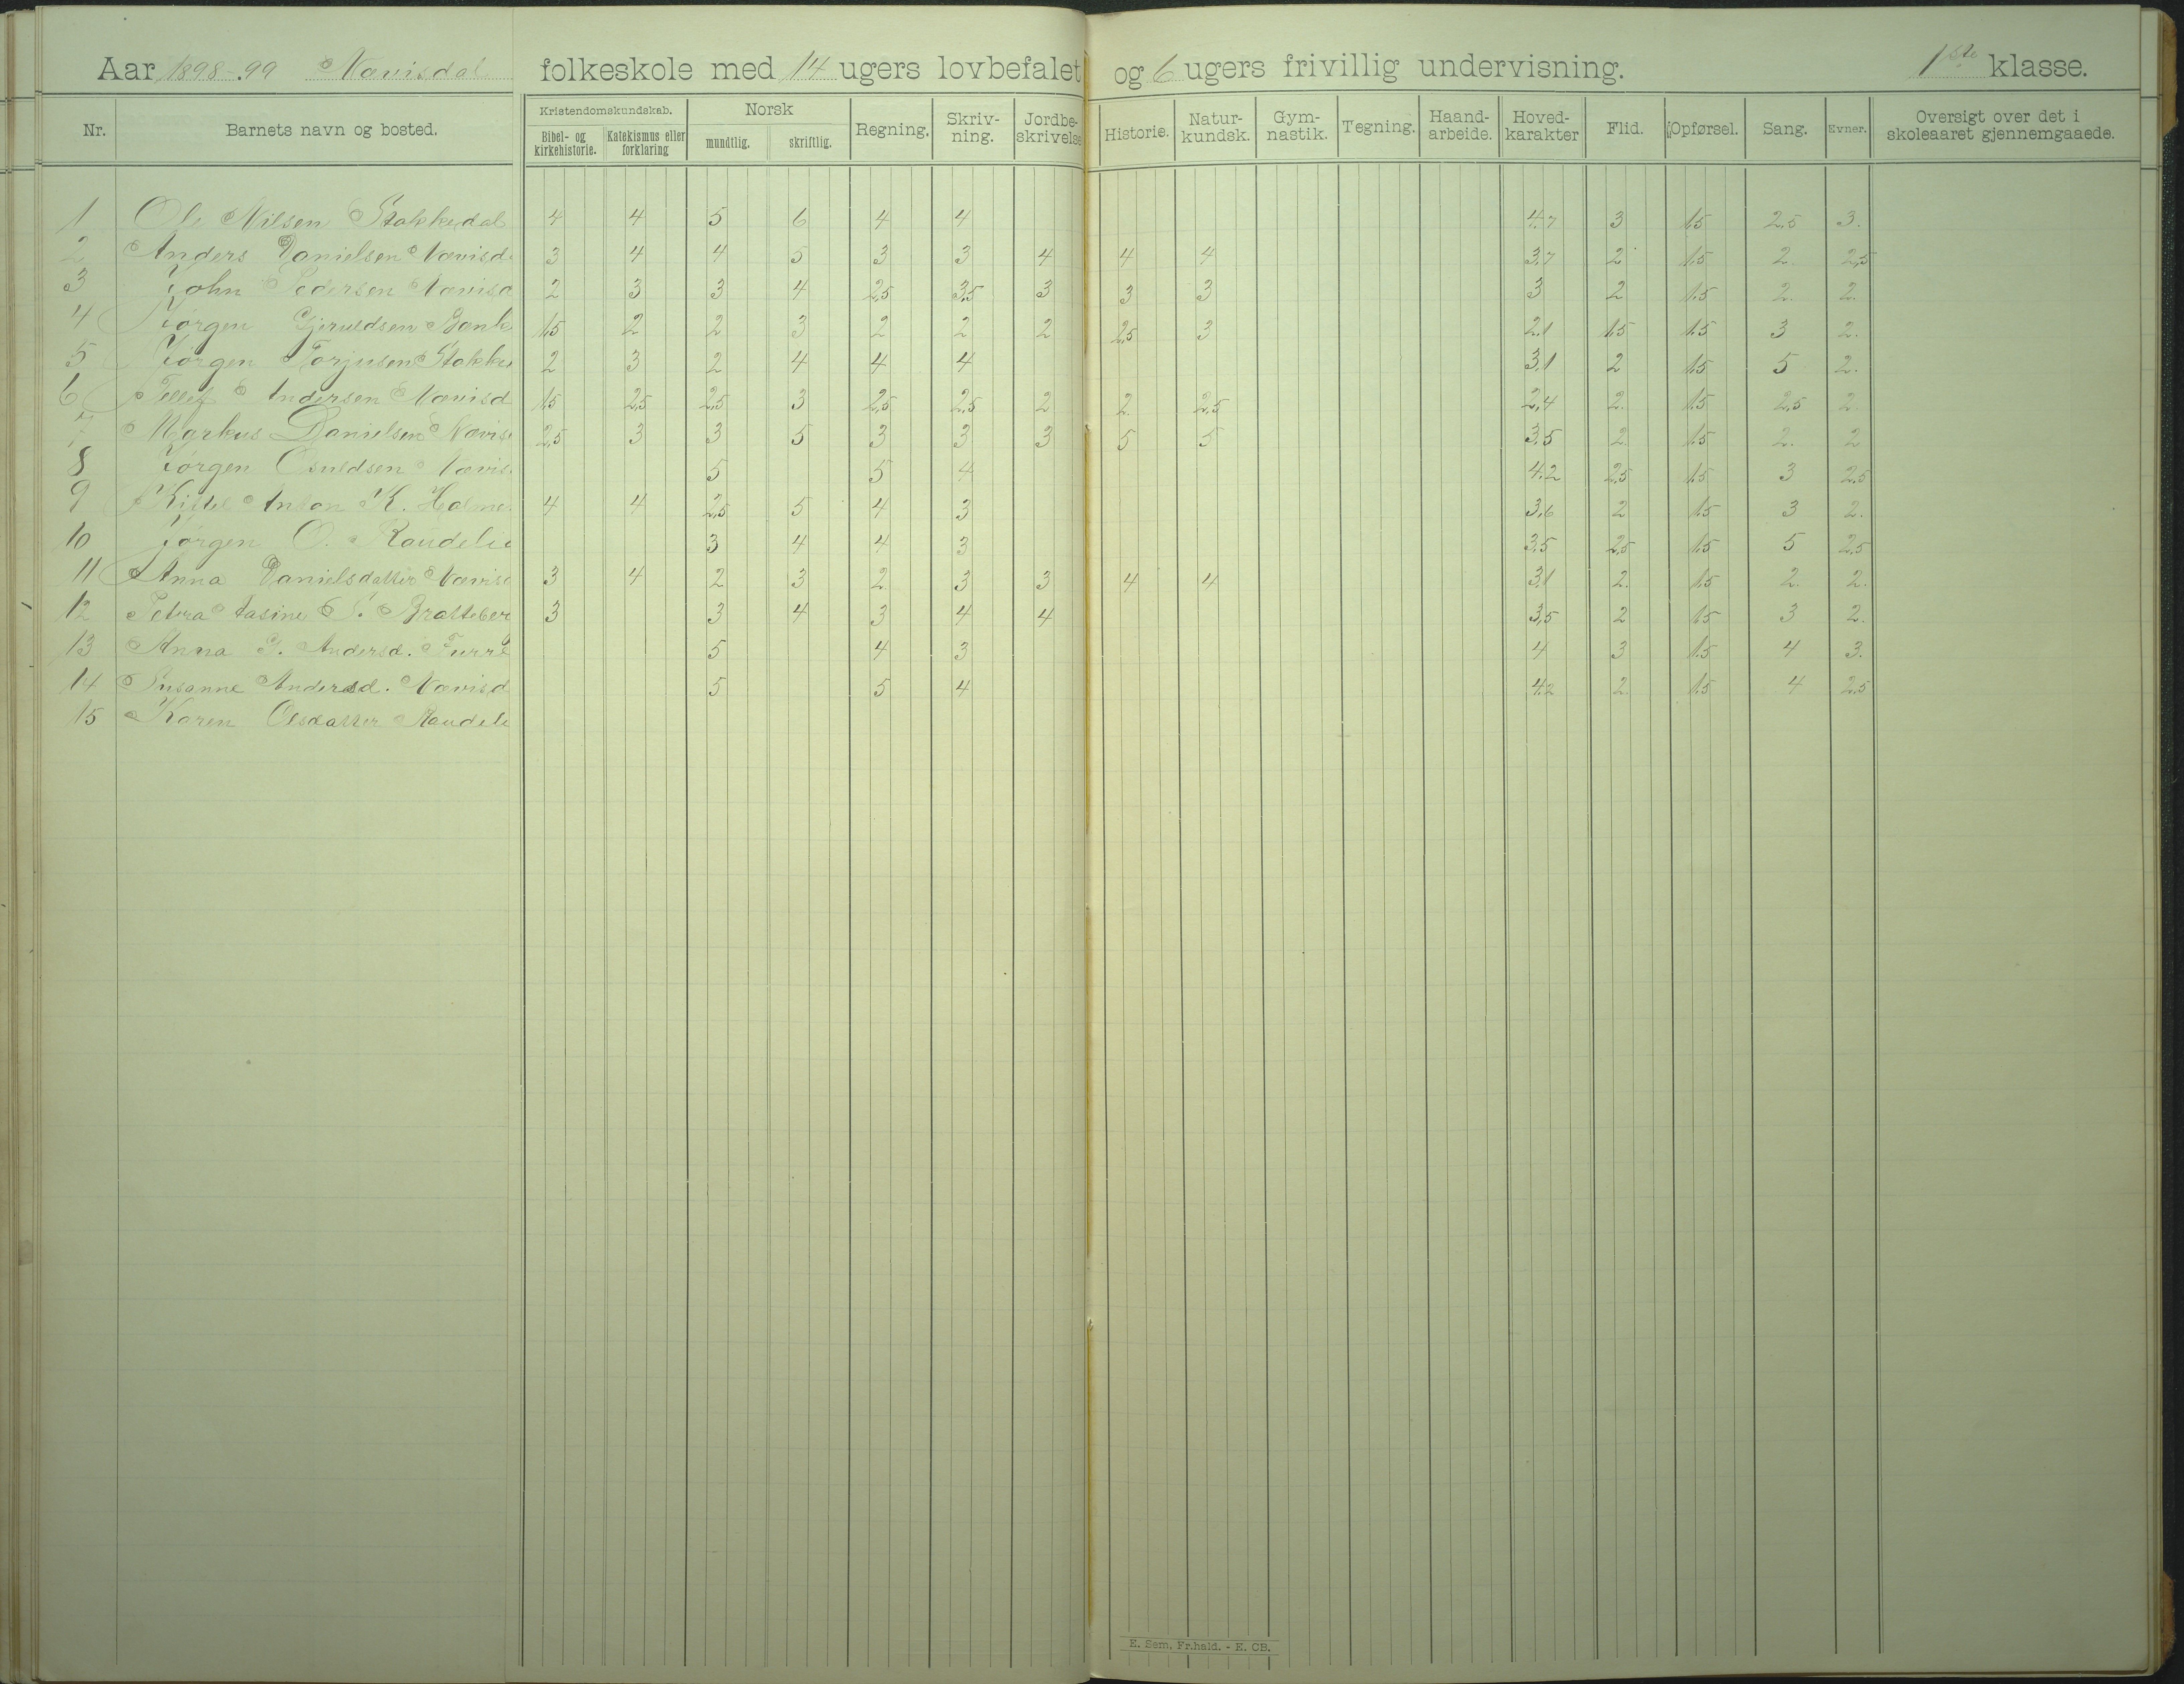 Aar 1898-99 Nævisdal folkeskole med 14 ugers lovbefalet og 6 ugers frivillig undervisning. 1ste klasse.
Nr. Barnets navn og bosted. Kristendomskundskab. Bibel- og kirkehistorie. Katekismus eller forklaring Norsk mundtlig. skriftlig. Regning. Skriv-ning. Jordbe-skrivelse Historie. Natur-kundsk. Gym-nastik. Tegning. Haand-arbeide. Hoved-karakter Flid. Opførsel. Sang. Evner. Oversigt over det i skoleaaret gjennemgaaede.
1 Ole Nilsen Stokkedal 4 4 5 6 4 4 4.7 3 1.5 2.5 3.
2 Anders Danielsen Nævisd 3 4 4 5 3 3 4 4 4 3.7 2 1.5 2. 2.5
3 John Pedersen Nævisd 2 3 3 4 2.5 3.5 3 3 3 3 2 1.5 2. 2.
4 Jørgen Gjeruldsen 1.5 2 2 3 2 2 2 2.5 3 2.1 1.5 1.5 3 2.
5 Jørgen Torjusen Stokke 2 3 2 4 4 4 3.1 2 1.5 5 2.
6 Tellef Andersen Nævisd 1.5 2.5 2.5 3 2.5 2.5 2 2. 2.5 2.4 2. 1.5 2.5 2
7 Markus Danielsen Nævis 2.5 3 3 5 3 3 3 5 5 3.5 2. 1.5 2. 2
8 Jørgen Osuldsen Nævis 5 5 4 4.2 2.5 1.5 3 2.5
9 Kittel Anton K. Holme 4 4 2.5 5 4 3 3.6 2 1.5 3 2.
10 Jørgen O. Raudeli 3 4 4 3 3.5 2.5 1.5 5 2.5
11 Anna Danielsdatter Nævis 3 4 2 3 2. 3 3 4 4 3.1 2. 1.5 2. 2.
12 Petra Tasine 3 3 4 3 4 4 3.5 2 1.5 3 2.
13 Anna G. Andersd. Furre 5 4 3 4 3 1.5 4 3.
14 Susanne Andersd. Nævisd 5 5 4 4.2 2. 1.5 4 2.5
15 Karen Olsdatter Raudele
E. Sem, Fr.hald. - E. CB.